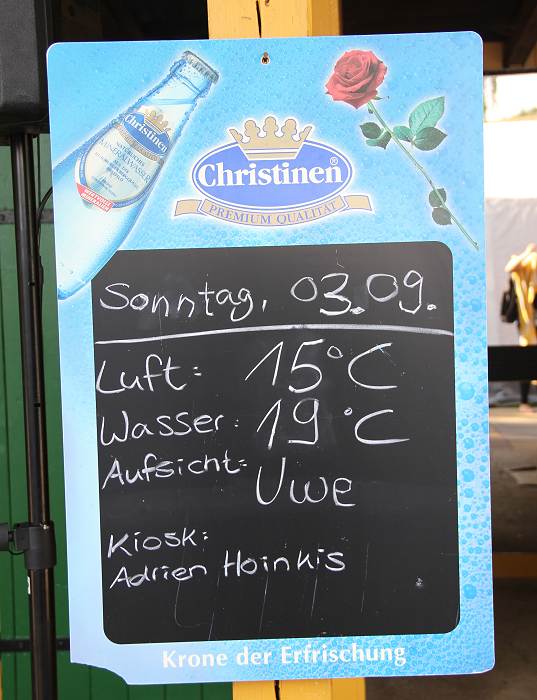 Christinen
NATÜRLICHES
MINERALWASSER
Christinen®
PREMIUM QUALITÄT
Sonntag, 03.09.
Luft: 15°C
Wasser: 19°C
Aufsicht: Uwe
Kiosk:
Adrien Hoinkis
Krone der Erfrischung